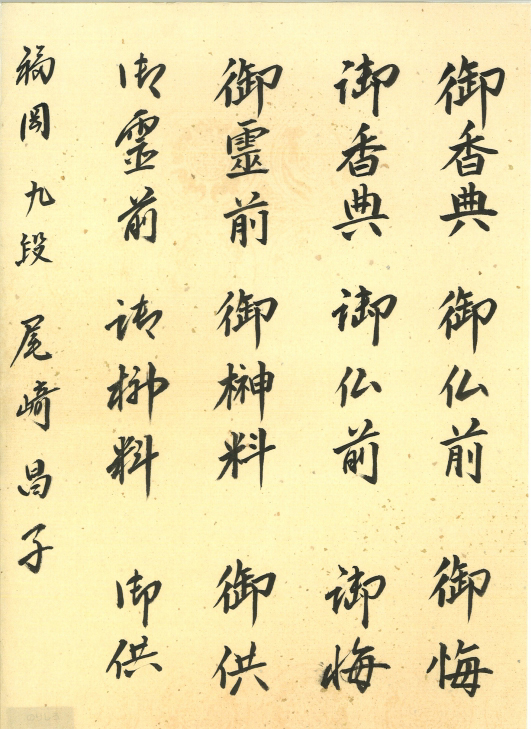 御香典 御仏前 御悔
御香典 御仏前 御悔
御霊前 御榊料 御供
御霊前 御榊料 御供
福岡 九段 尾崎昌子